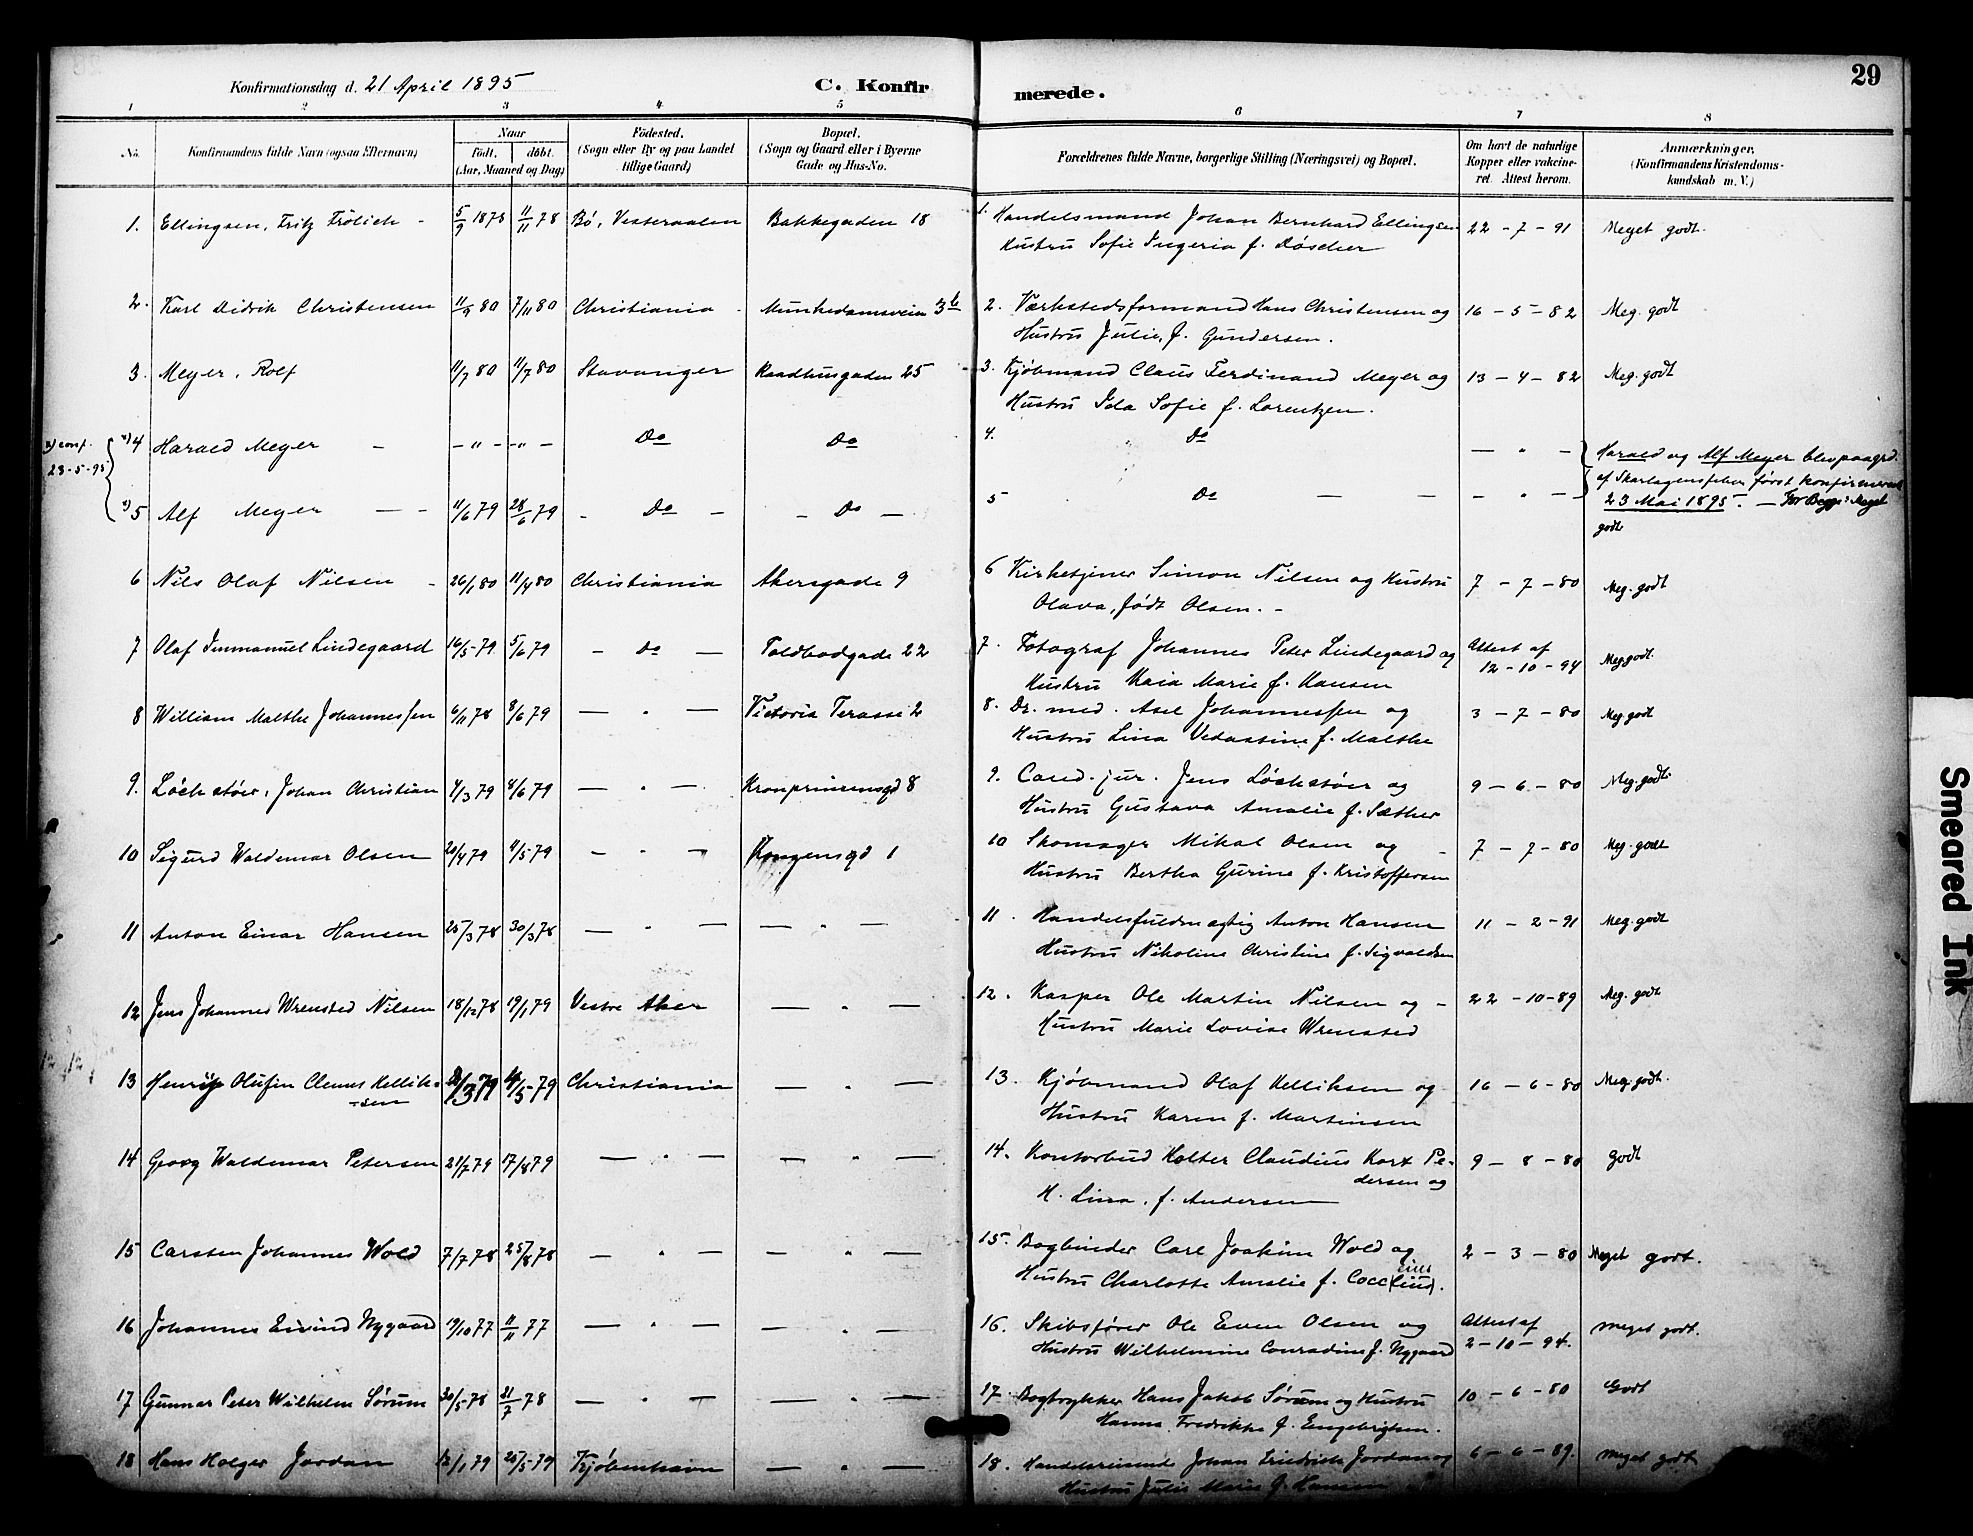 29
Konfirmationsdag d. 21 April 1895
C. Konfirmerede.
1 2 3 4 5 6 7 8
No.
Konfirmandens fulde Navn (ogsaa Efternavn)
Naar
födt. döbt.
(Aar, Maaned og Dag)
Födested.
(Sogn eller By og paa Landet
tillige Gaard)
Bopæl.
(Sogn og Gaard eller i Byerne
Gade og Hus-No.
Forældrenes fulde Navne, borgerlige Stilling (Næringsvei) og Bopæl.
Om havt de naturlige
Kopper eller vakcine-
ret. Attest herom.
Anmærkninger.
(Konfirmandens Kristendoms-
kundskab m. V.)
1. Ellingsen, Fritz Frölich - 5/9 1878 11/11 78 Bö, Vesteraalen Bakkegaden 18 1. Handelsmand Johan Bernhard Ellingsen 22-7-91 Meget godt.
Hustru Sofie Ingeria f. Döscher
2. Karl Didrik Christensen 11/9 80 7/11 80 Christiania Munkedamsveien 3 b 2. Værkstedsformand Hans Christensen og 16-5-82 Meg. godt
Hustru Julie, f. Gundersen.
3. Meyer, Rolf 11/7 80 11/7 80 Stavanger Raadhusgaden 25 3. Kjöbmand Claus Ferdinand Meyer og 13-4-82 Meg. godt
Hustru Ida Sofie f. Lorentzen.
x) conf.
23-5-95
x) 4 Harald Meyer - - " - - " - Do Do 4. Do - " -
x) 5 Alf Meyer - - 11/6 79 28/6 79 - Do - - Do - 5 Do - - - " -
Harald og Alf Meyer blev paagrd.
af Skarlagensfeber först konfirmeret
23 Mai 1895. - For Begge: Meget
godt
6 Nils Olaf Nilsen - 26/1 80 11/4 80 Christiania Akersgade 9 6 Kirketjener Simon Nilsen og Hustru 7-7-80 Meg. godt
Olava, födt Olsen. -
7 Olaf Immanuel Lindegaard 16/5 79 5/6 79 - Do - Toldbodgade 22 7. Fotograf Johannes Peter Lindegaard og Attest af
12-10-94 Meg. godt.
Hustru Kaia Marie f. Hansen
8 William Malthe Johannessen 6/11 78 8/6 79 - " - Victoria Terasse 2 8. Dr. med. Axel Johannessen og 3-7-80 Meg. godt
Hustru Lina Vedastine f. Malthe
9. Löchstöer, Johan Christian 4/3 79 8/6 79 - " - Kronprinsensgd 8 9. Cand. jur. Jens Löchstöer og 9-6-80 Meg. godt.
Hustru Gustava Amalie f. Sæther
10 Sigurd Waldemar Olsen 20/4 79 4/5 79 - " - Kongensgd 1 10 Skomager Mikal Olsen og - 7-7-80 Meg. godt
Hustru Bertha Gurine f. Kristoffersen
11 Anton Einar Hansen 25/3 78 30/3 78 - " - - " - 11. Handelsfuldmægtig Anton Hansen 11-2-91 Meg. godt
Hustru Nikoline Christine f. Sigvaldsen
12 Jens Johannes Wrensted Nilsen 18/12 78 19/1 79 Vestre Aker - " - 12. Kasper Ole Martin Nilsen og - 22-10-89 Meg. godt
Hustru Marie Lovise Wrensted
13 Olufin Clemes Kellik-
-sen /3 79 /5 79 Christiania - " - 13. Kjöbmand Olaf Kelliksen og 16-6-80 Meg. godt.
Hustru Karen f. Martinsen
14 Georg Waldemar Petersen 21/7 79 17/8 79 - " - - " - 14. Kontorbud Holter Claudius Kort Pe-
dersen og 9-8-80 godt
H. Lina, f. Andersen
15 Carsten Johannes Wold 7/7 78 25/8 78 - " - - " - 15. Bogbinder Carl Joakim Wold og 2-3-80 Meget godt.
Hustru Charlotte Amalie f. Cocc
16 Johannes Eivind Nygaard 19/10 77 11/11 77 - " - - " - 16. Skibsförer Ole Even Olsen og Attest af
2-10-94. meget godt.
Hustru Wilhelmine Conradine f. Nygaard
17 Gunnar Peter Wilhelm Sörum 30/5 78 21/7 78 - " - - " - 17. Bogtrykker Hans Jakob Sörum og Hustru 10-6-80 Godt
Hanna Fredrikke f. Engebrigtsen.
18 Hans Holger Jordan /1 79 25/5 79 Kjöbenhavn - " - 18. Handelsreisende Johan Friedrich Jordan og 6-6-89. meget godt
Hustru Julie Marie f. Hansen
Smeared Ink